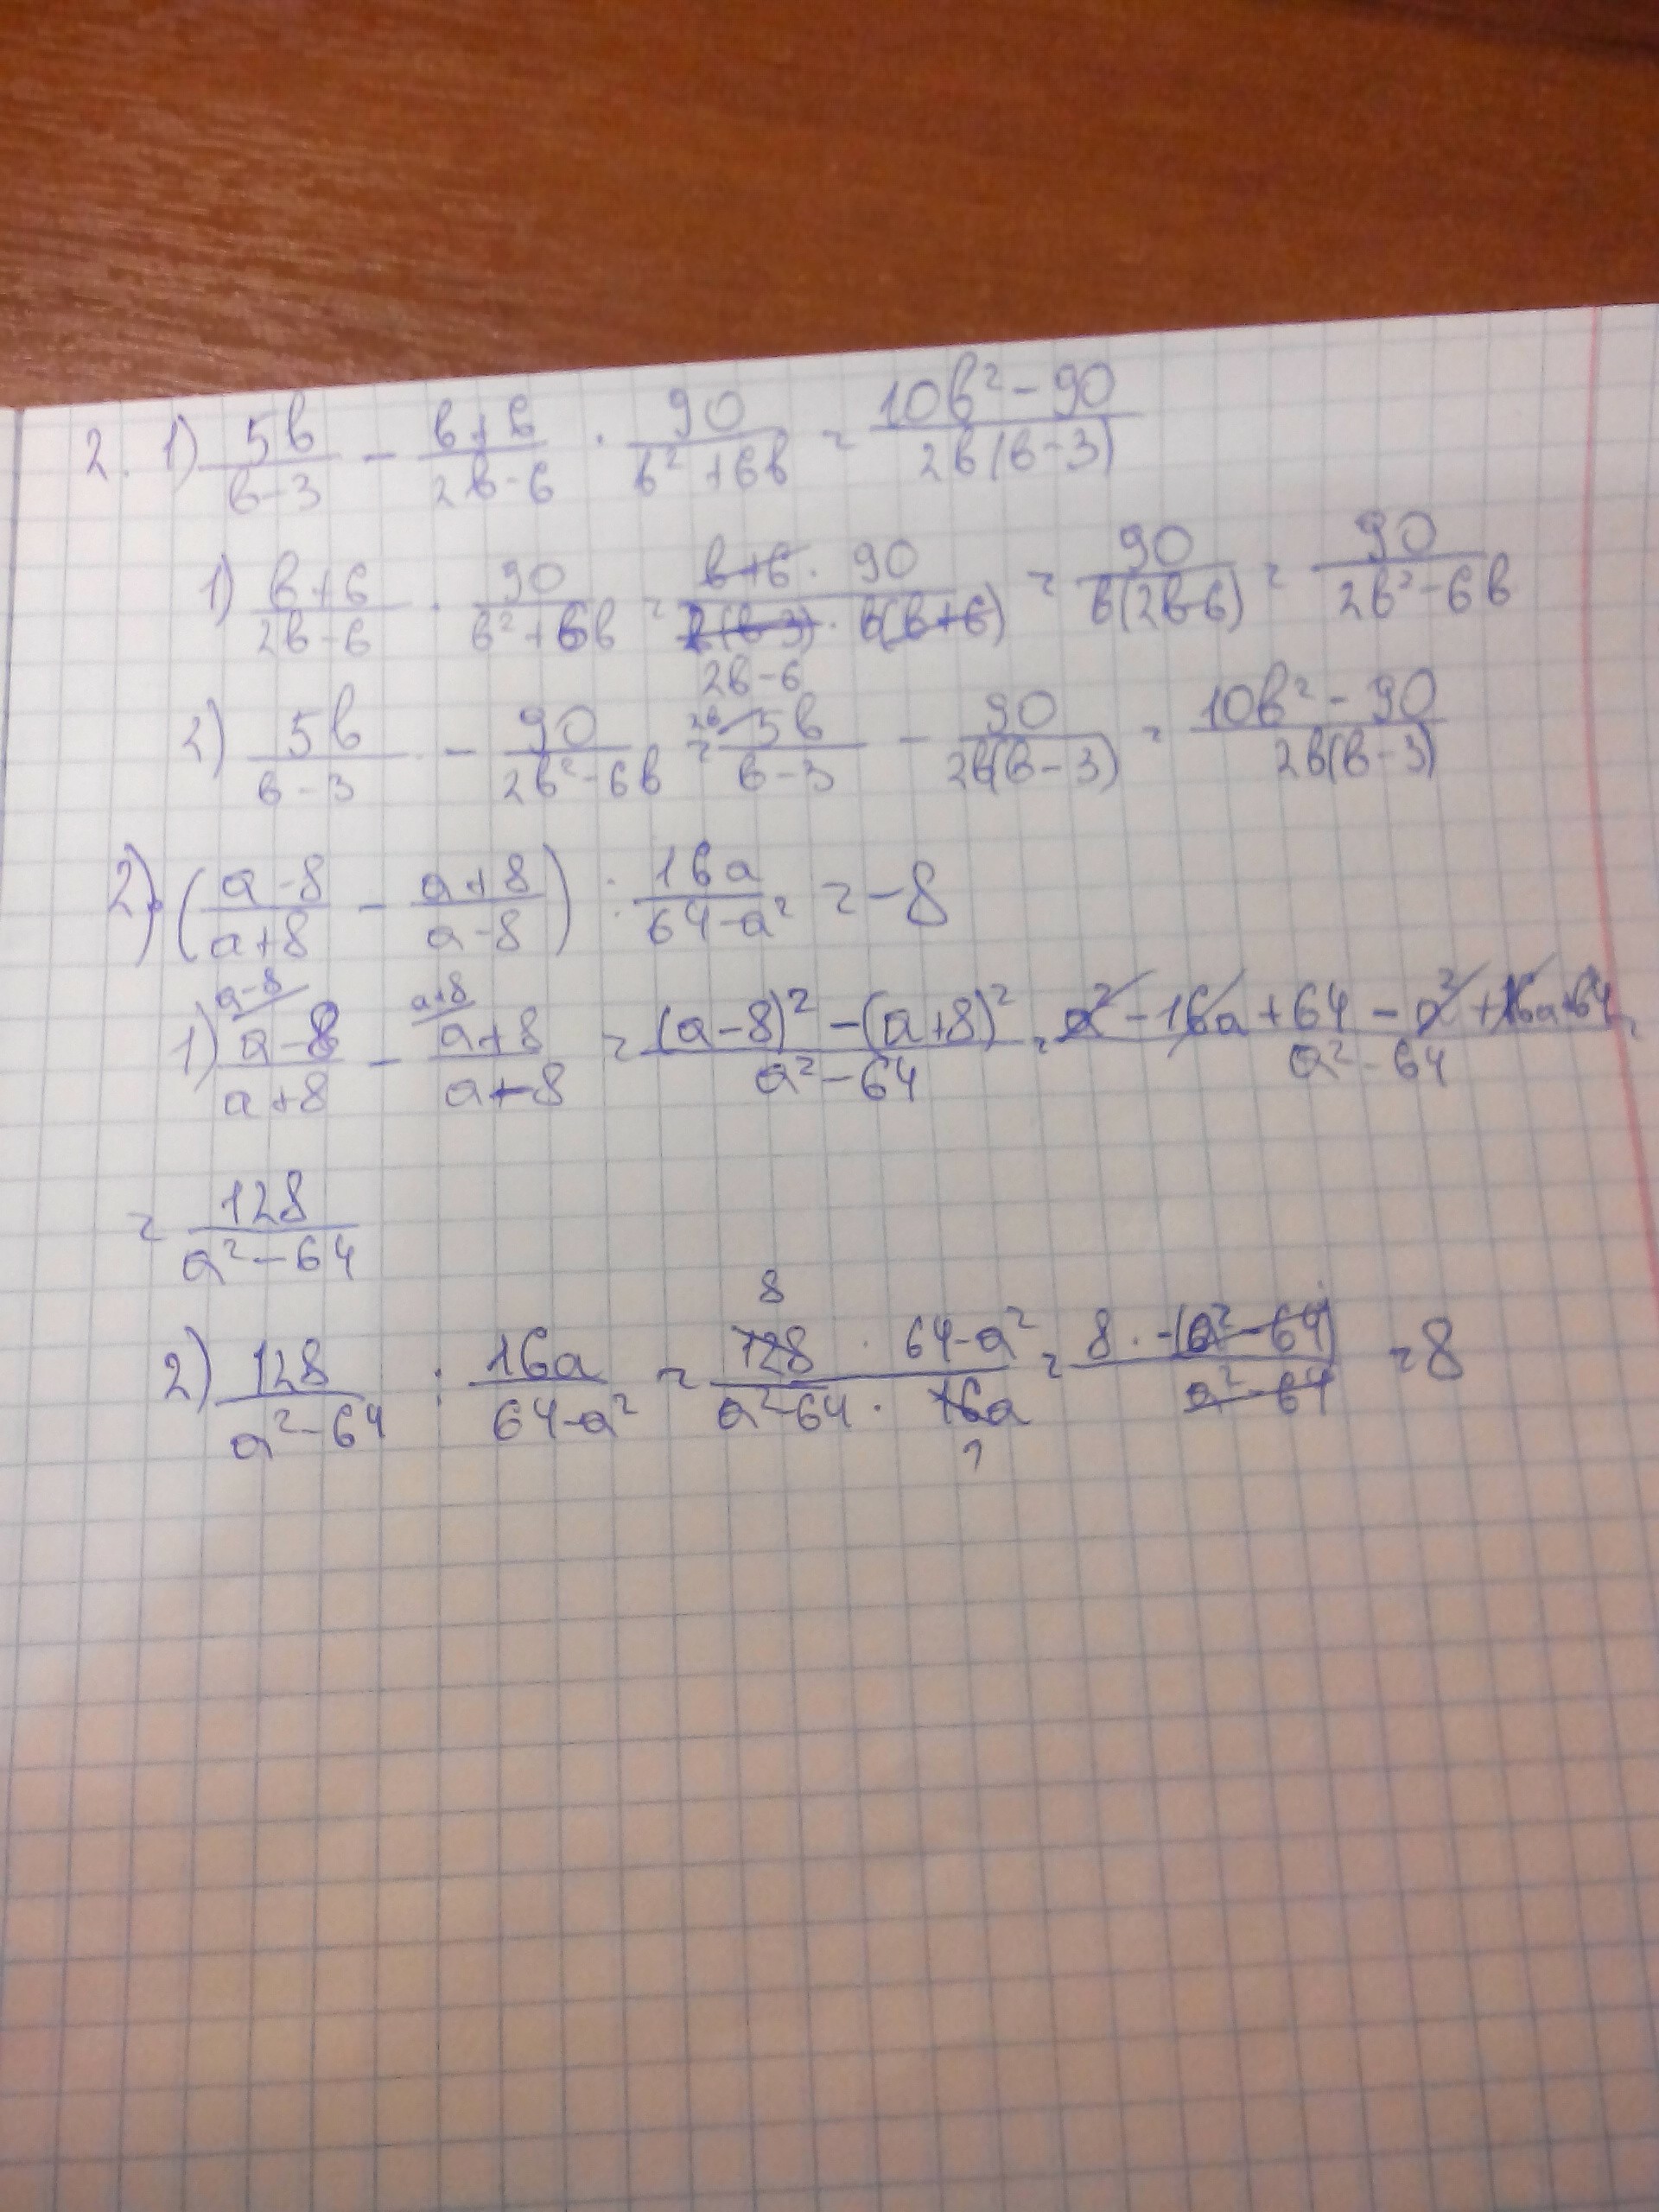 2. 1) 5в/(в-3) - (в+6)/(2в-6) · 90/(в²+6в) = (10в²-90)/(2в(в-3))
1) (в+6)/(2в-6) · 90/(в²+6в) = (в+6 · 90)/(2(в-3) · в(в+6)) = 90/(в(2в-6)) = 90/(2в²-6в)
2в-6
2) 5в/(в-3) - 90/(2в²-6в) = 2в 5в/(в-3) - 90/(2в(в-3)) = (10в²-90)/(2в(в-3))
2) ((a-8)/(a+8) - (a+8)/(a-8)) : 16a/(64-a²) = -8
a-8 a+8
1) (a-8)/(a+8) - (a+8)/(a-8) = ((a-8)²-(a+8)²)/(a²-64) = (a²-16a+64-a²+16a+64)/(a²-64) =
= 128/(a²-64)
8
2) 128/(a²-64) : 16a/(64-a²) = (128 · 64-a²)/(a²-64 · 16a) = (8 · -(a²-64))/(a²-64) = 8